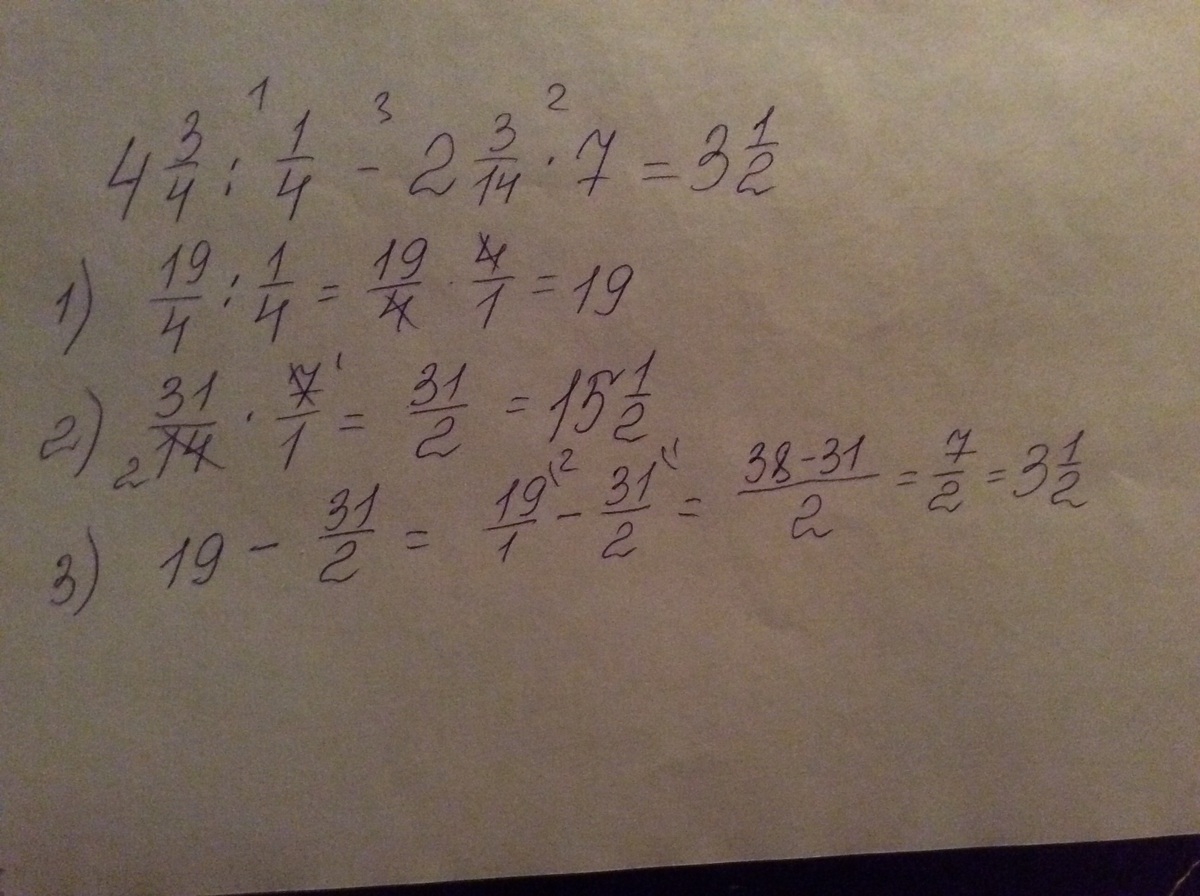 4 3/4 : 1/4 - 2 3/14 · 7 = 3 1/2
1) 19/4 : 1/4 = 19/4 · 4/1 = 19
2) 31/14 · 7/1 = 31/2 = 15 1/2
3) 19 - 31/2 = 19/1 - 31/2 = 38-31/2 = 7/2 = 3 1/2